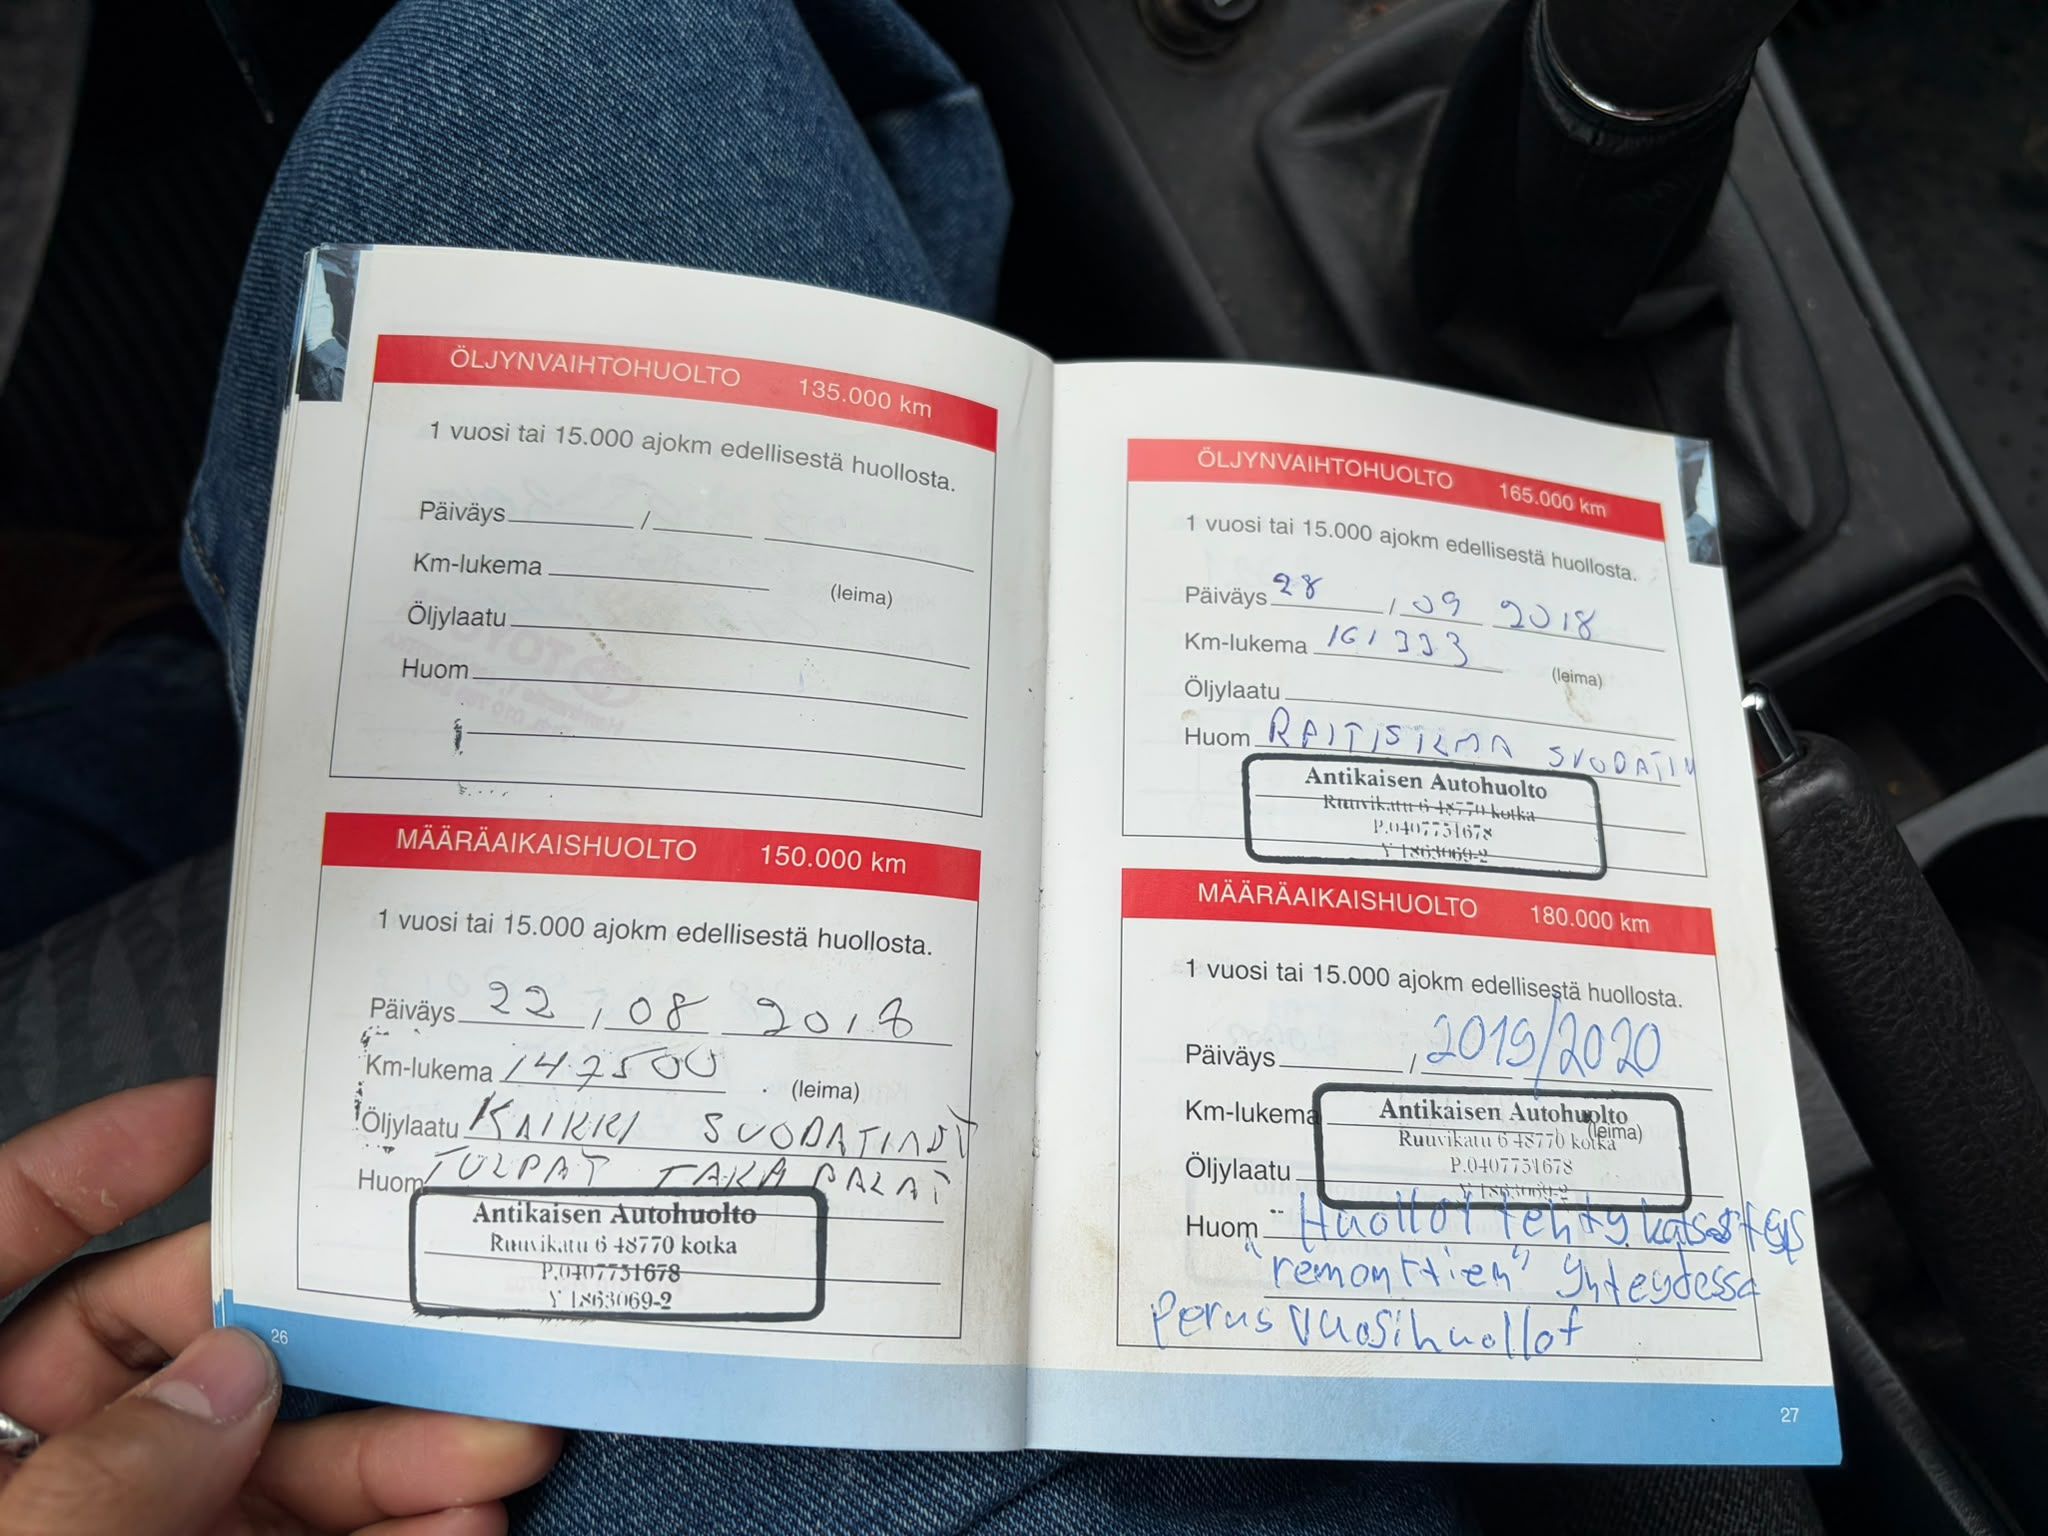 ÖLJYNVAIHTOHUOLTO 135.000 km
1 vuosi tai 15.000 ajokm edellisestä huollosta.
Päiväys / 
Km-lukema (leima)
Öljylaatu
Huom
MÄÄRÄAIKAISHUOLTO 150.000 km
1 vuosi tai 15.000 ajokm edellisestä huollosta.
Päiväys 22 , 08 2018
Km-lukema 147500 (leima)
Öljylaatu KAIKKI SUODATIMET
Huom TULPAT TAKA PALAT
Antikaisen Autohuolto
Ruuvikatu 6 48770 kotka
P.0407751678
Y 1863069-2
26
ÖLJYNVAIHTOHUOLTO 165.000 km
1 vuosi tai 15.000 ajokm edellisestä huollosta.
Päiväys 28 / 09 2018
Km-lukema 161333 (leima)
Öljylaatu
Huom RAITISILMA SUODATIN
Antikaisen Autohuolto
Ruuvikatu 6 48770 kotka
P.0407751678
Y 1863069-2
MÄÄRÄAIKAISHUOLTO 180.000 km
1 vuosi tai 15.000 ajokm edellisestä huollosta.
Päiväys , 2019/2020
Km-lukema (leima)
Antikaisen Autohuolto
Ruuvikatu 6 48770 kotka
P.0407751678
Y 1863069-2
Öljylaatu
Huom Huollot tehty
"remonttien" yhteydessä
perus vuosihuollot
27